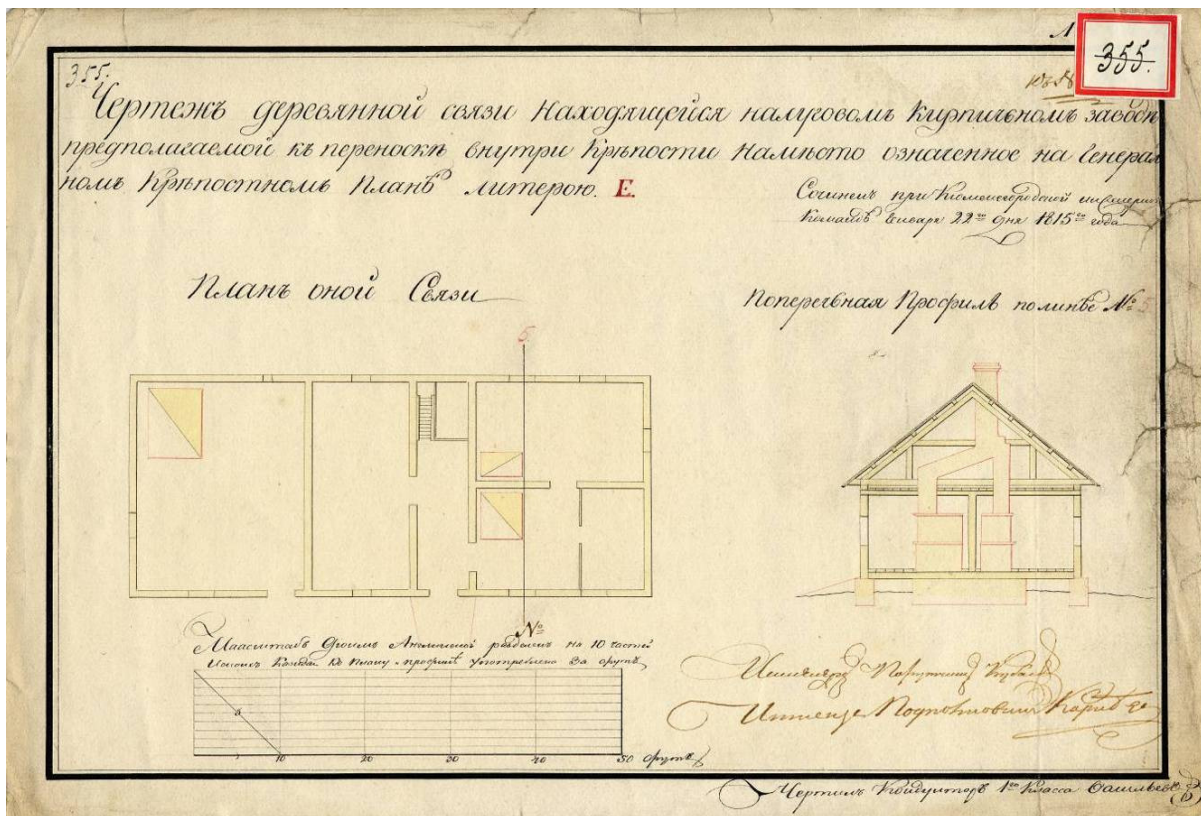 355.
355.
Чертежъ деревянной связи Находящейся налуговомъ Кирпичномъ заводѣ
предполагаемой къ переноскѣ внутри Крѣпости Намѣсто означенное на Генерал
номъ Крѣпостномъ Планѣ литерою. Е.
Сочиненъ при
Командѣ Генваря 22го дня 1815го года
Планъ оной Связи
Поперечная Профиль полинѣе № 5
5
№
Маасштабъ Дюймъ Аглинской на 10 частей
Къ плану и профилѣ употреблено За футъ
5 10 20 30 40 50 футъ
Инженеръ Порутчикъ
Инженеръ Подполковникъ
Чертилъ Кондукторъ 1го Класса Васильевъ